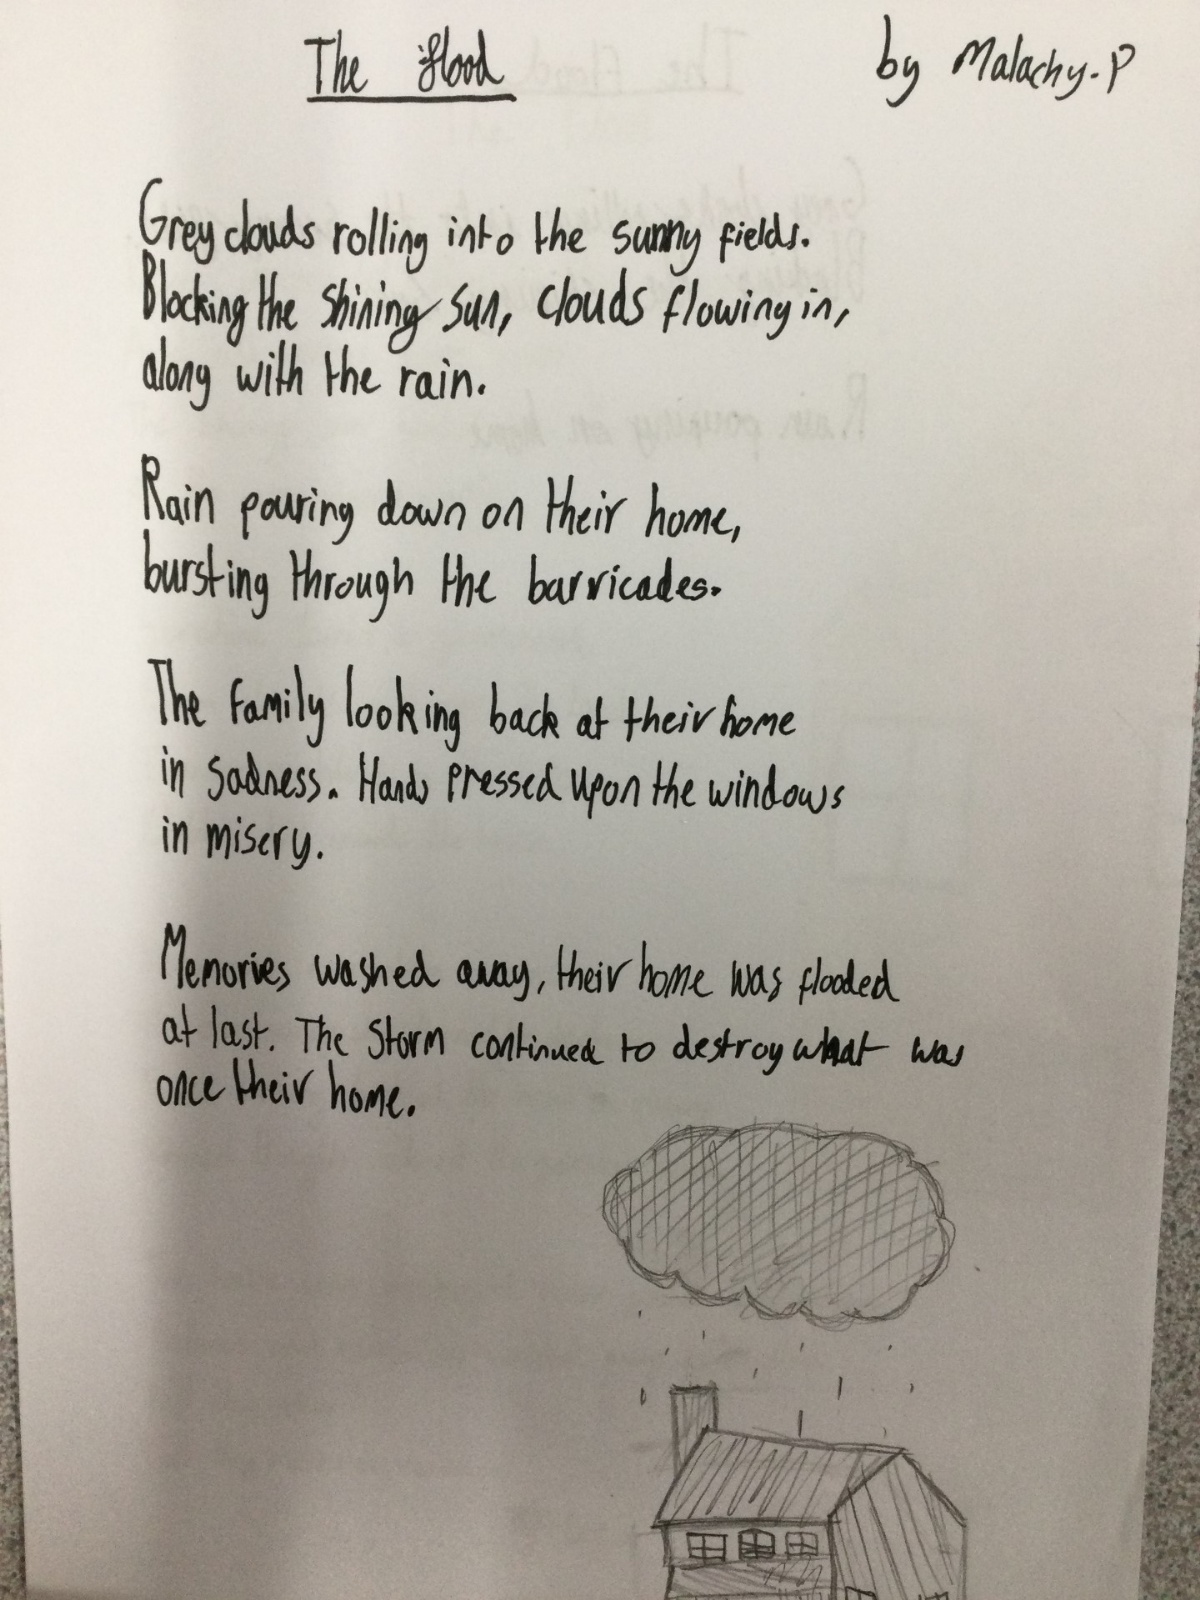 The flood
by Malachy.P
Grey clouds rolling into the sunny fields.
Blocking the shining sun, clouds flowing in,
along with the rain.
Rain pouring down on their home,
bursting through the barricades.
The family looking back at their home
in sadness. Hands pressed upon the windows
in misery.
Memories washed away, their home was flooded
at last. The storm continued to destroy what was
once their home.